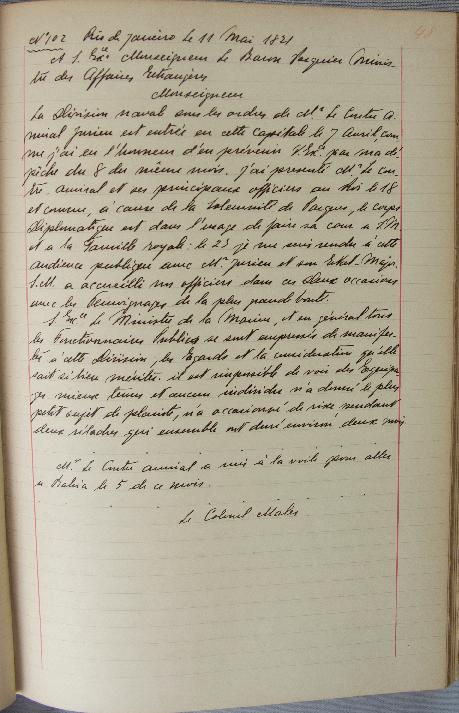 48
Nº 102 Rio de Janeiro le 11 Mai 1821
A S. Exce Monseigneur Le Baron Pasquier Minis-
tre des Affaires Etrangères
Monseigneur
La Division naval sous les ordres de Mr. Le Contre A-
miral Jurien est entrée en cette capitale le 7 Avril, com
me j'ai eu l'honneur d'en prévenir V. Exce par ma dé-
pêche du 8 du même mois. J'ai présenté Mr. Le con-
tre amiral et ses principaux officiers au Roi le 18
et comme, à cause de la solemnité de Pâques, le corps
Diplomatique est dans l'usage de faire sa cour a S. M
et a la Famille royale: le 23 je me suis rendu à cette
audience publique avec Mr. Jurien et son Etat-Major.
S. M. a accueilli nos officiers dans ces deux occasions
avec les témoignages de la plus grande bonté.
S. Exce Le Ministre de la Marine, et en général tous
les Fonctionnaires Publics se sont empressés de manifes-
té à cette Division, les Egards et la considération qu'elle
sait si bien mérités. il est impossible de voir des Equipa-
ges mieux tenus et aucun individu n'a donné le plus
petit sujet de plainte, n'a occasionné de rixe pendant
deux relaches qui ensemble ont duré environ deux mois
Mr. Le Contre amiral a mis à la voile pour aller
a Bahia le 5 de ce mois.
Le Colonel Maler